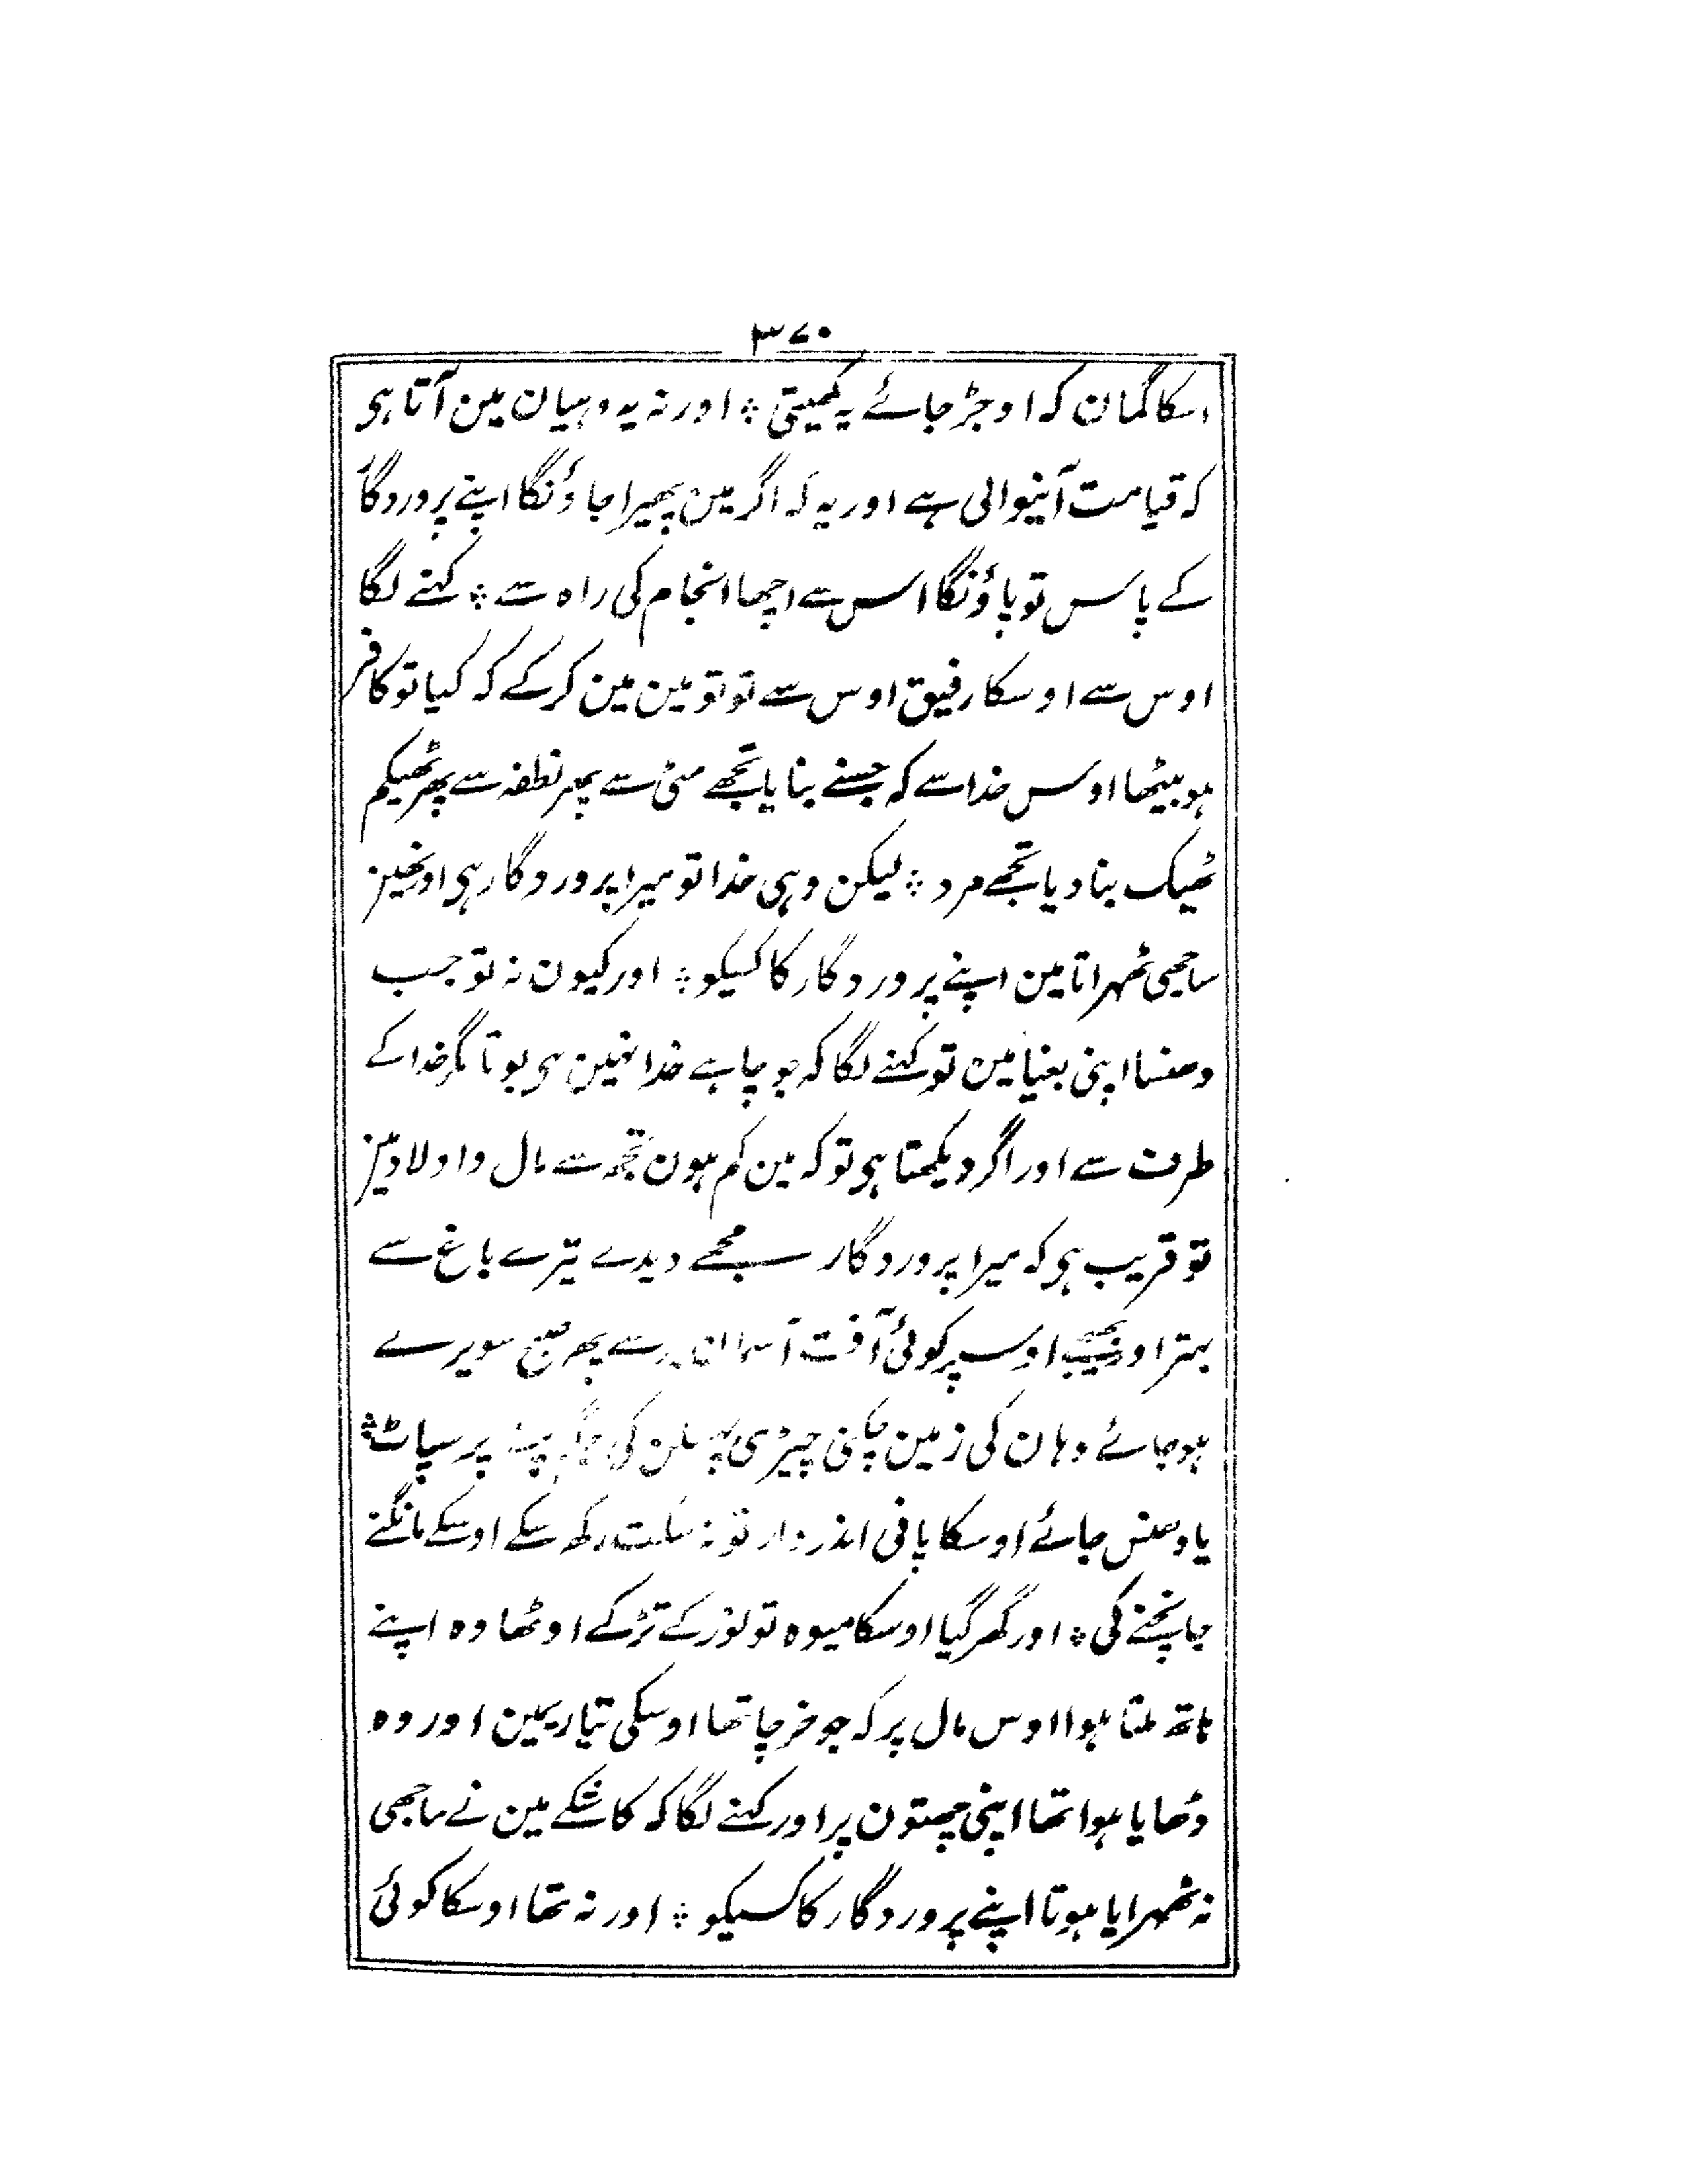 ۳۷۰
اسکا گمان کہ اوجڑ جائے یہ کھیتی ؞ اور نہ یہ دہیان مین آتا ہی
کہ قیامت آنیوالی ہے اور یہ کہ اگر مین پھیرا جاؤنگا اپنے پروردگار
کے پاس تو پاؤنگا اس سے اچھا انجام کی راہ سے ؞ کہنے لگا
اوس سے اوسکا رفیق اوس سے تو تو مین مین کرکے کہ کیا تو کافر
ہو بیٹھا اوس خدا سے کہ جسنے بنایا تجھے مٹی سے پھر نطفہ سے پھر ٹھیکم
ٹھیک بنا دیا تجھے مرد ؞ لیکن وہی خدا تو میرا پروردگار ہی اور نہین
ساجھی ٹھہراتا مین اپنے پروردگار کا کسیکو ؞ اور کیون نہ تو جب
دھنسا اپنی بغیا مین تو کہنے لگا کہ جو چاہے خدا نہین ہی بوتا مگر خدا کے
طرف سے اور اگر دیکھتا ہی تو کہ مین کم ہون تجھ سے مال و اولاد مین
تو قریب ہی کہ میرا پروردگار مجھے دیدے تیرے باغ سے
بہتر اور بھیجے اوسپر کوئی آفت آسمان سے پھر صبح سویرے
ہو جائے وہان کی زمین چکنی چپڑی پھسلن کی پر سپاٹ ؞
یا دھنس جائے اوسکا پانی اندر وار تو نہ سکت رکھ سکے اوسکے مانگنے
جانچنے کی ؞ اور گھر گیا اوسکا میوہ تو نور کے تڑکے اوٹھا وہ اپنے
ہاتھ ملتا ہوا اوس مال پر کہ جو خرچا تھا اوسکی تیاریمین اور وہ
ڈھایا ہوا تھا اپنی چھتون پر اور کہنے لگا کہ کاشکے مین نے ساجھی
نہ ٹھہرایا ہوتا اپنے پروردگار کا کسیکو ؞ اور نہ تھا اوسکا کوئی